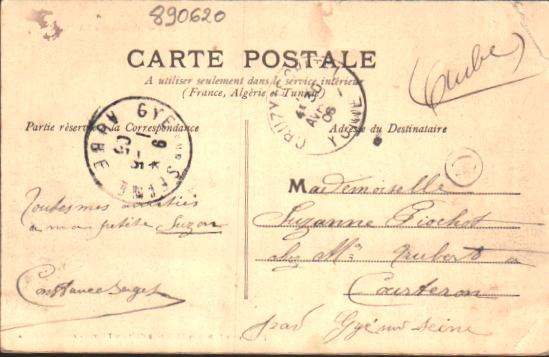 890620
CARTE POSTALE
A utiliser seulement dans le service intérieur
(France, Algérie et Tunisie)
(Aube)
Partie réservée à la Correspondance
Adresse du Destinataire
GYE SUR SEINE
AUBE
CRUZY
YONNE
Toutes mes amitiés
a ma petite Suzon
Constance
Mademoiselle
Suzanne Piochot
chez Mr
Courteron
par Gyé sur Seine